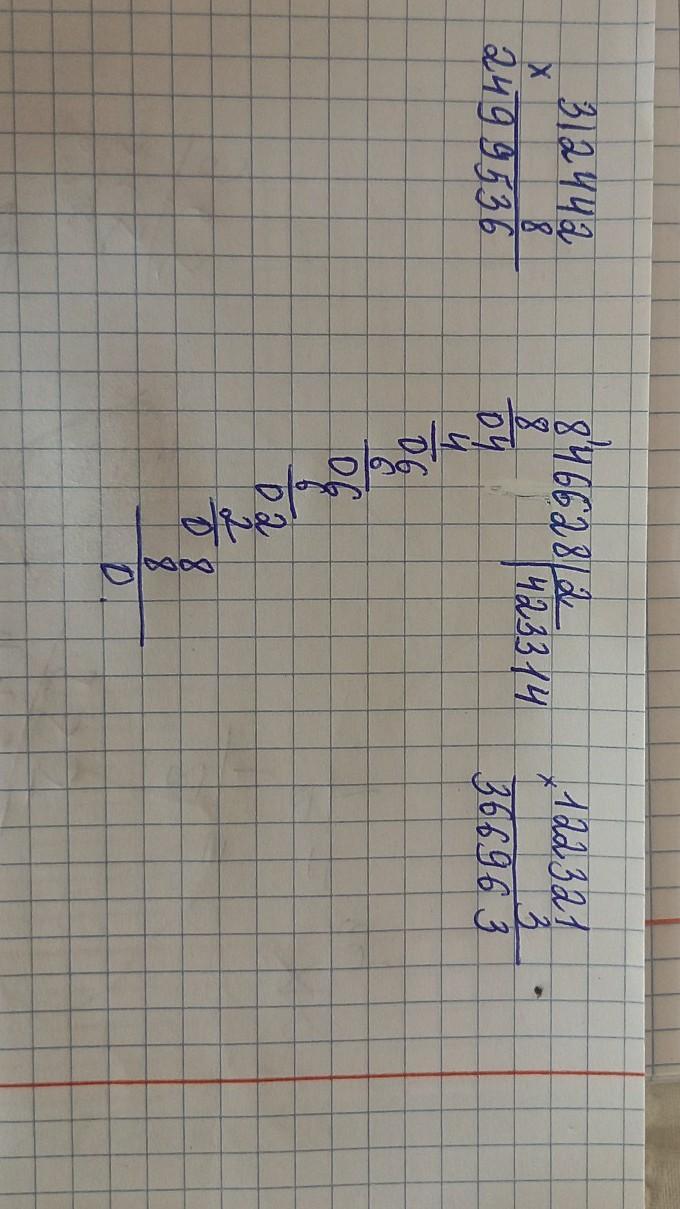 312442
×
8
2499536
846628 | 2
8 423314
04
4
06
6
06
6
02
2
08
8
0.
122321
×
3
366963